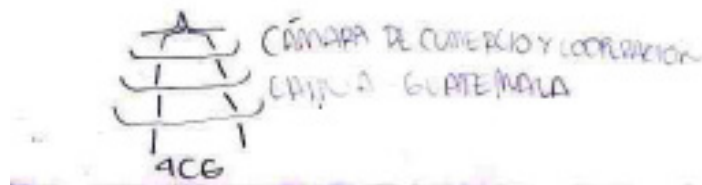 CÁMARA DE COMERCIO Y COOPERACION
CHINA GUATEMALA
4CG